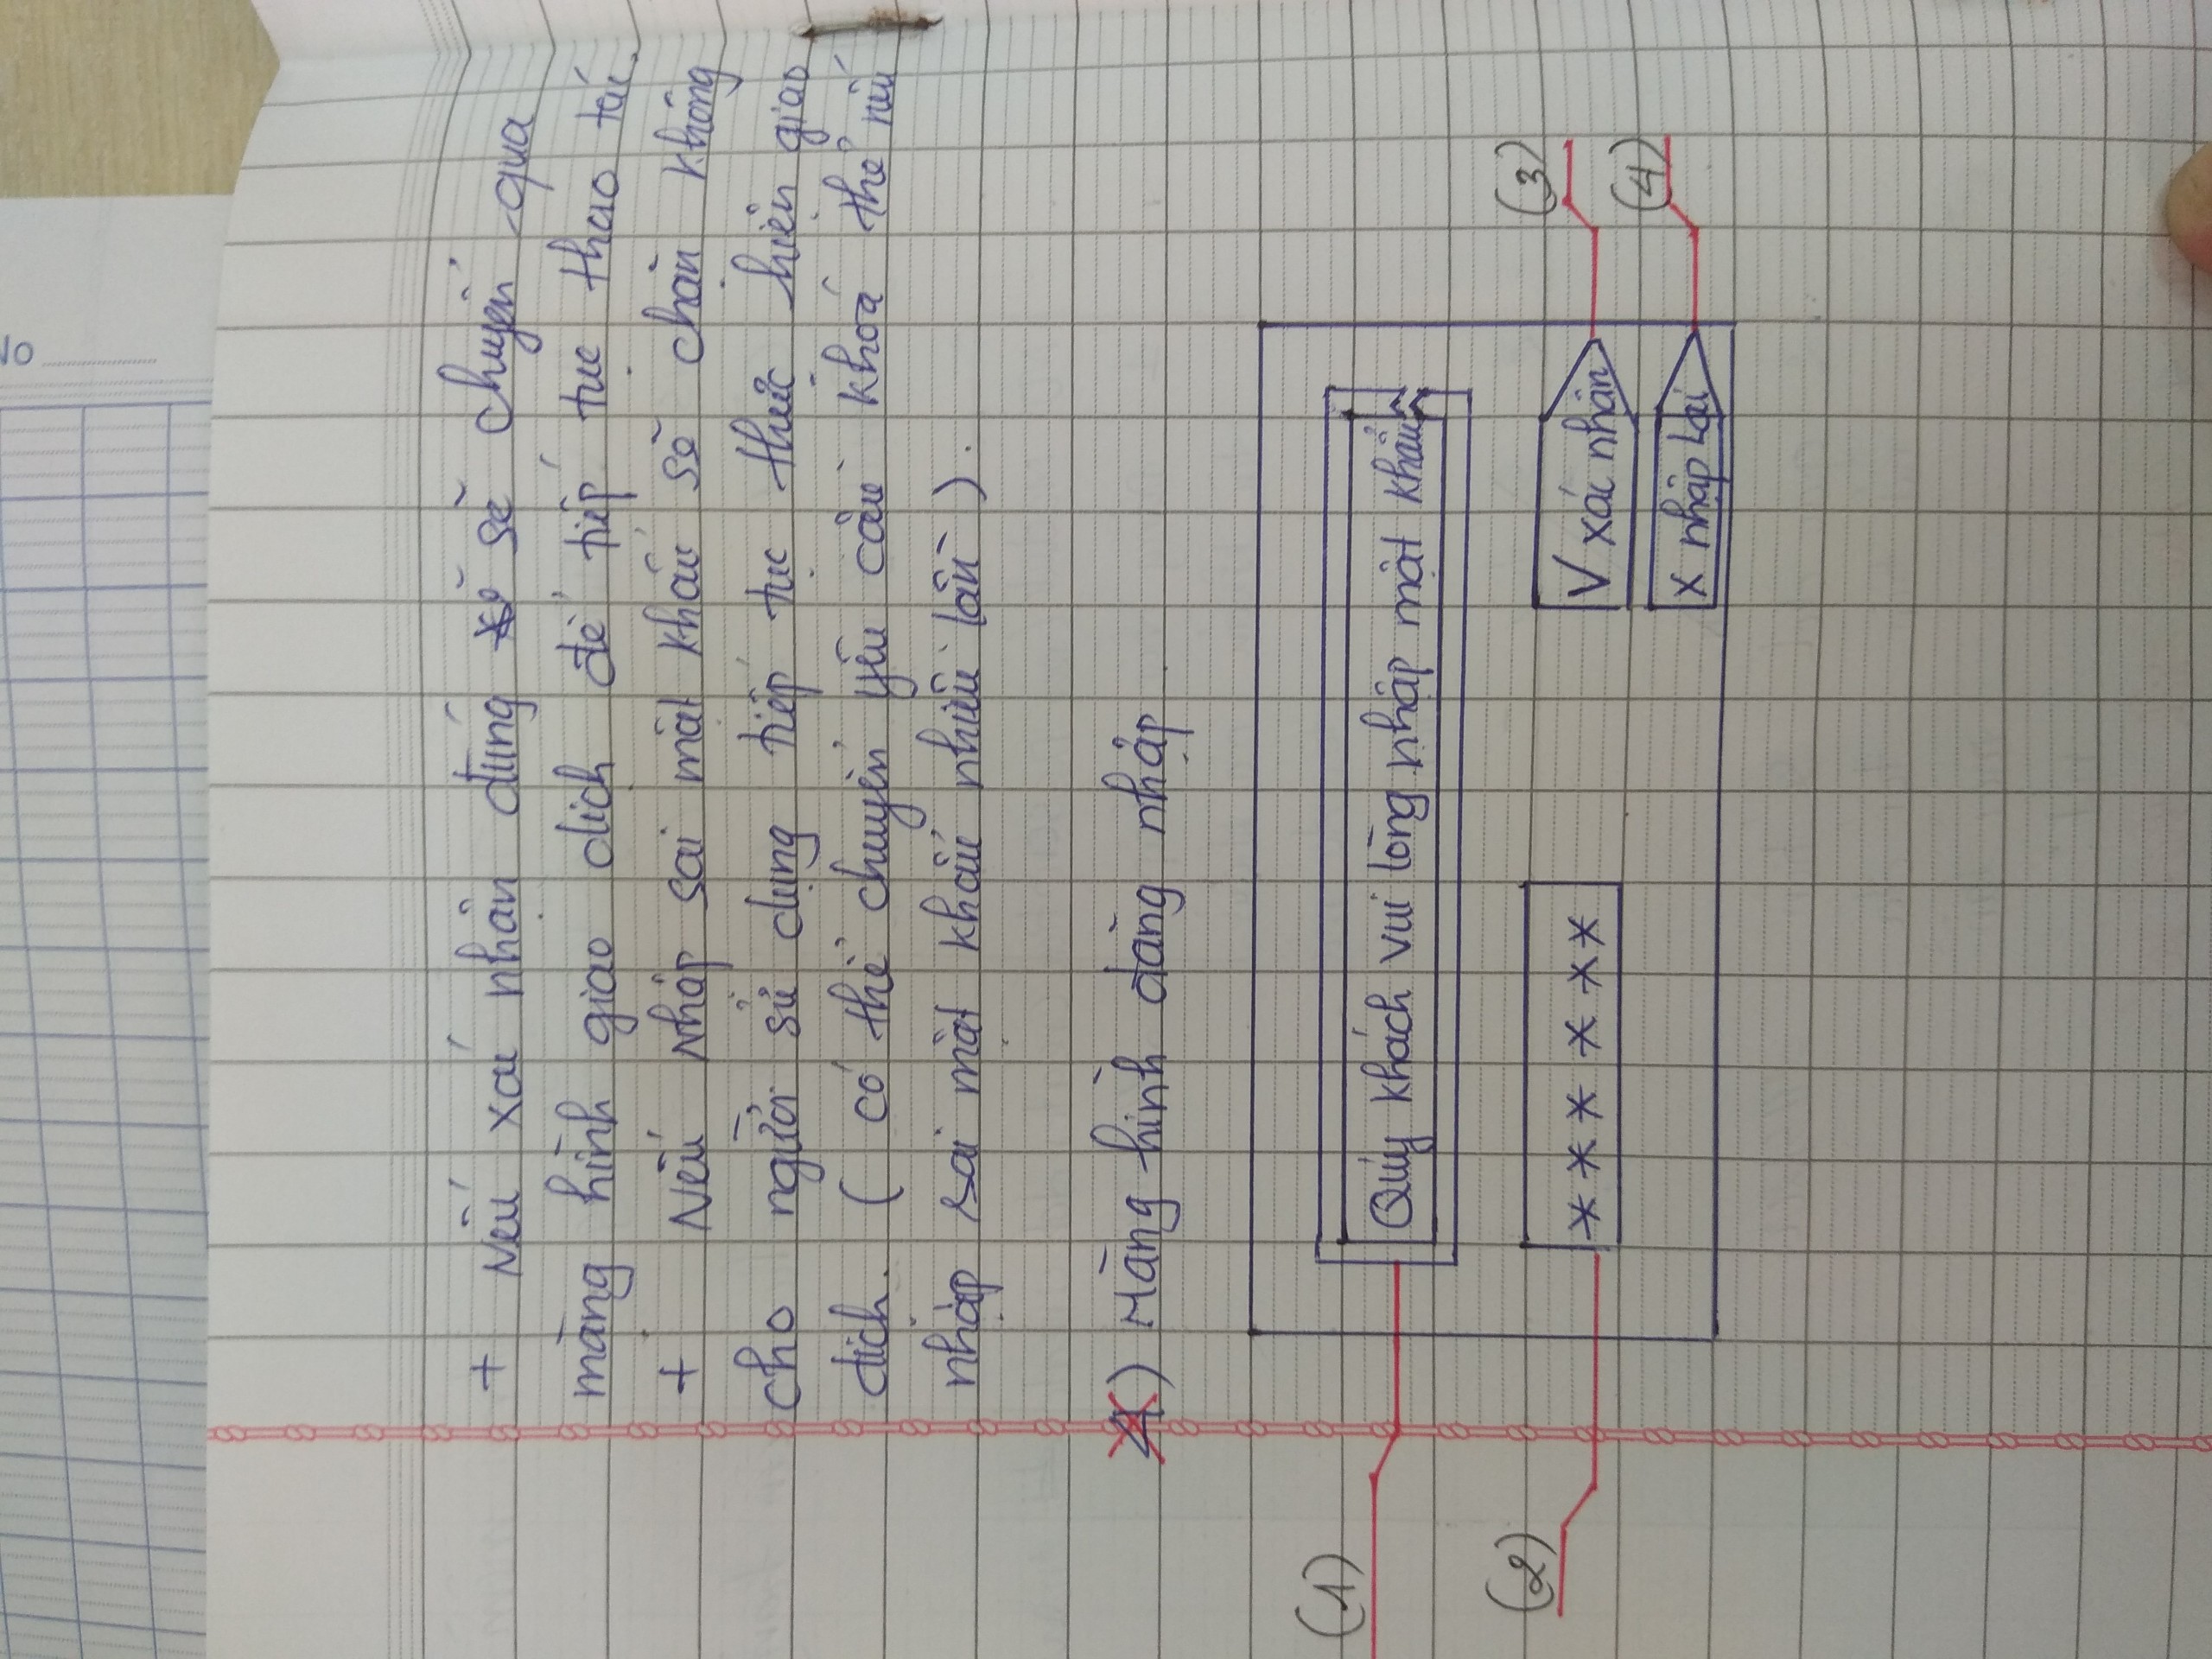 No
+ Nếu xác nhận đúng sẽ chuyển qua
màng hình giao dịch để tiếp tục thao tác.
+ Nếu nhập sai mật khẩu sẽ chặn không
cho người sử dụng tiếp tục thực hiện giao
dịch. ( có thể chuyển yêu cầu khoá thẻ nếu
nhập sai mật khẩu nhiều lần ).
4) Màng hình đăng nhập
(1)
Quý khách vui lòng nhập mật khẩu
(2)
* * * * * *
V xác nhận
(3)
X nhập lại
(4)